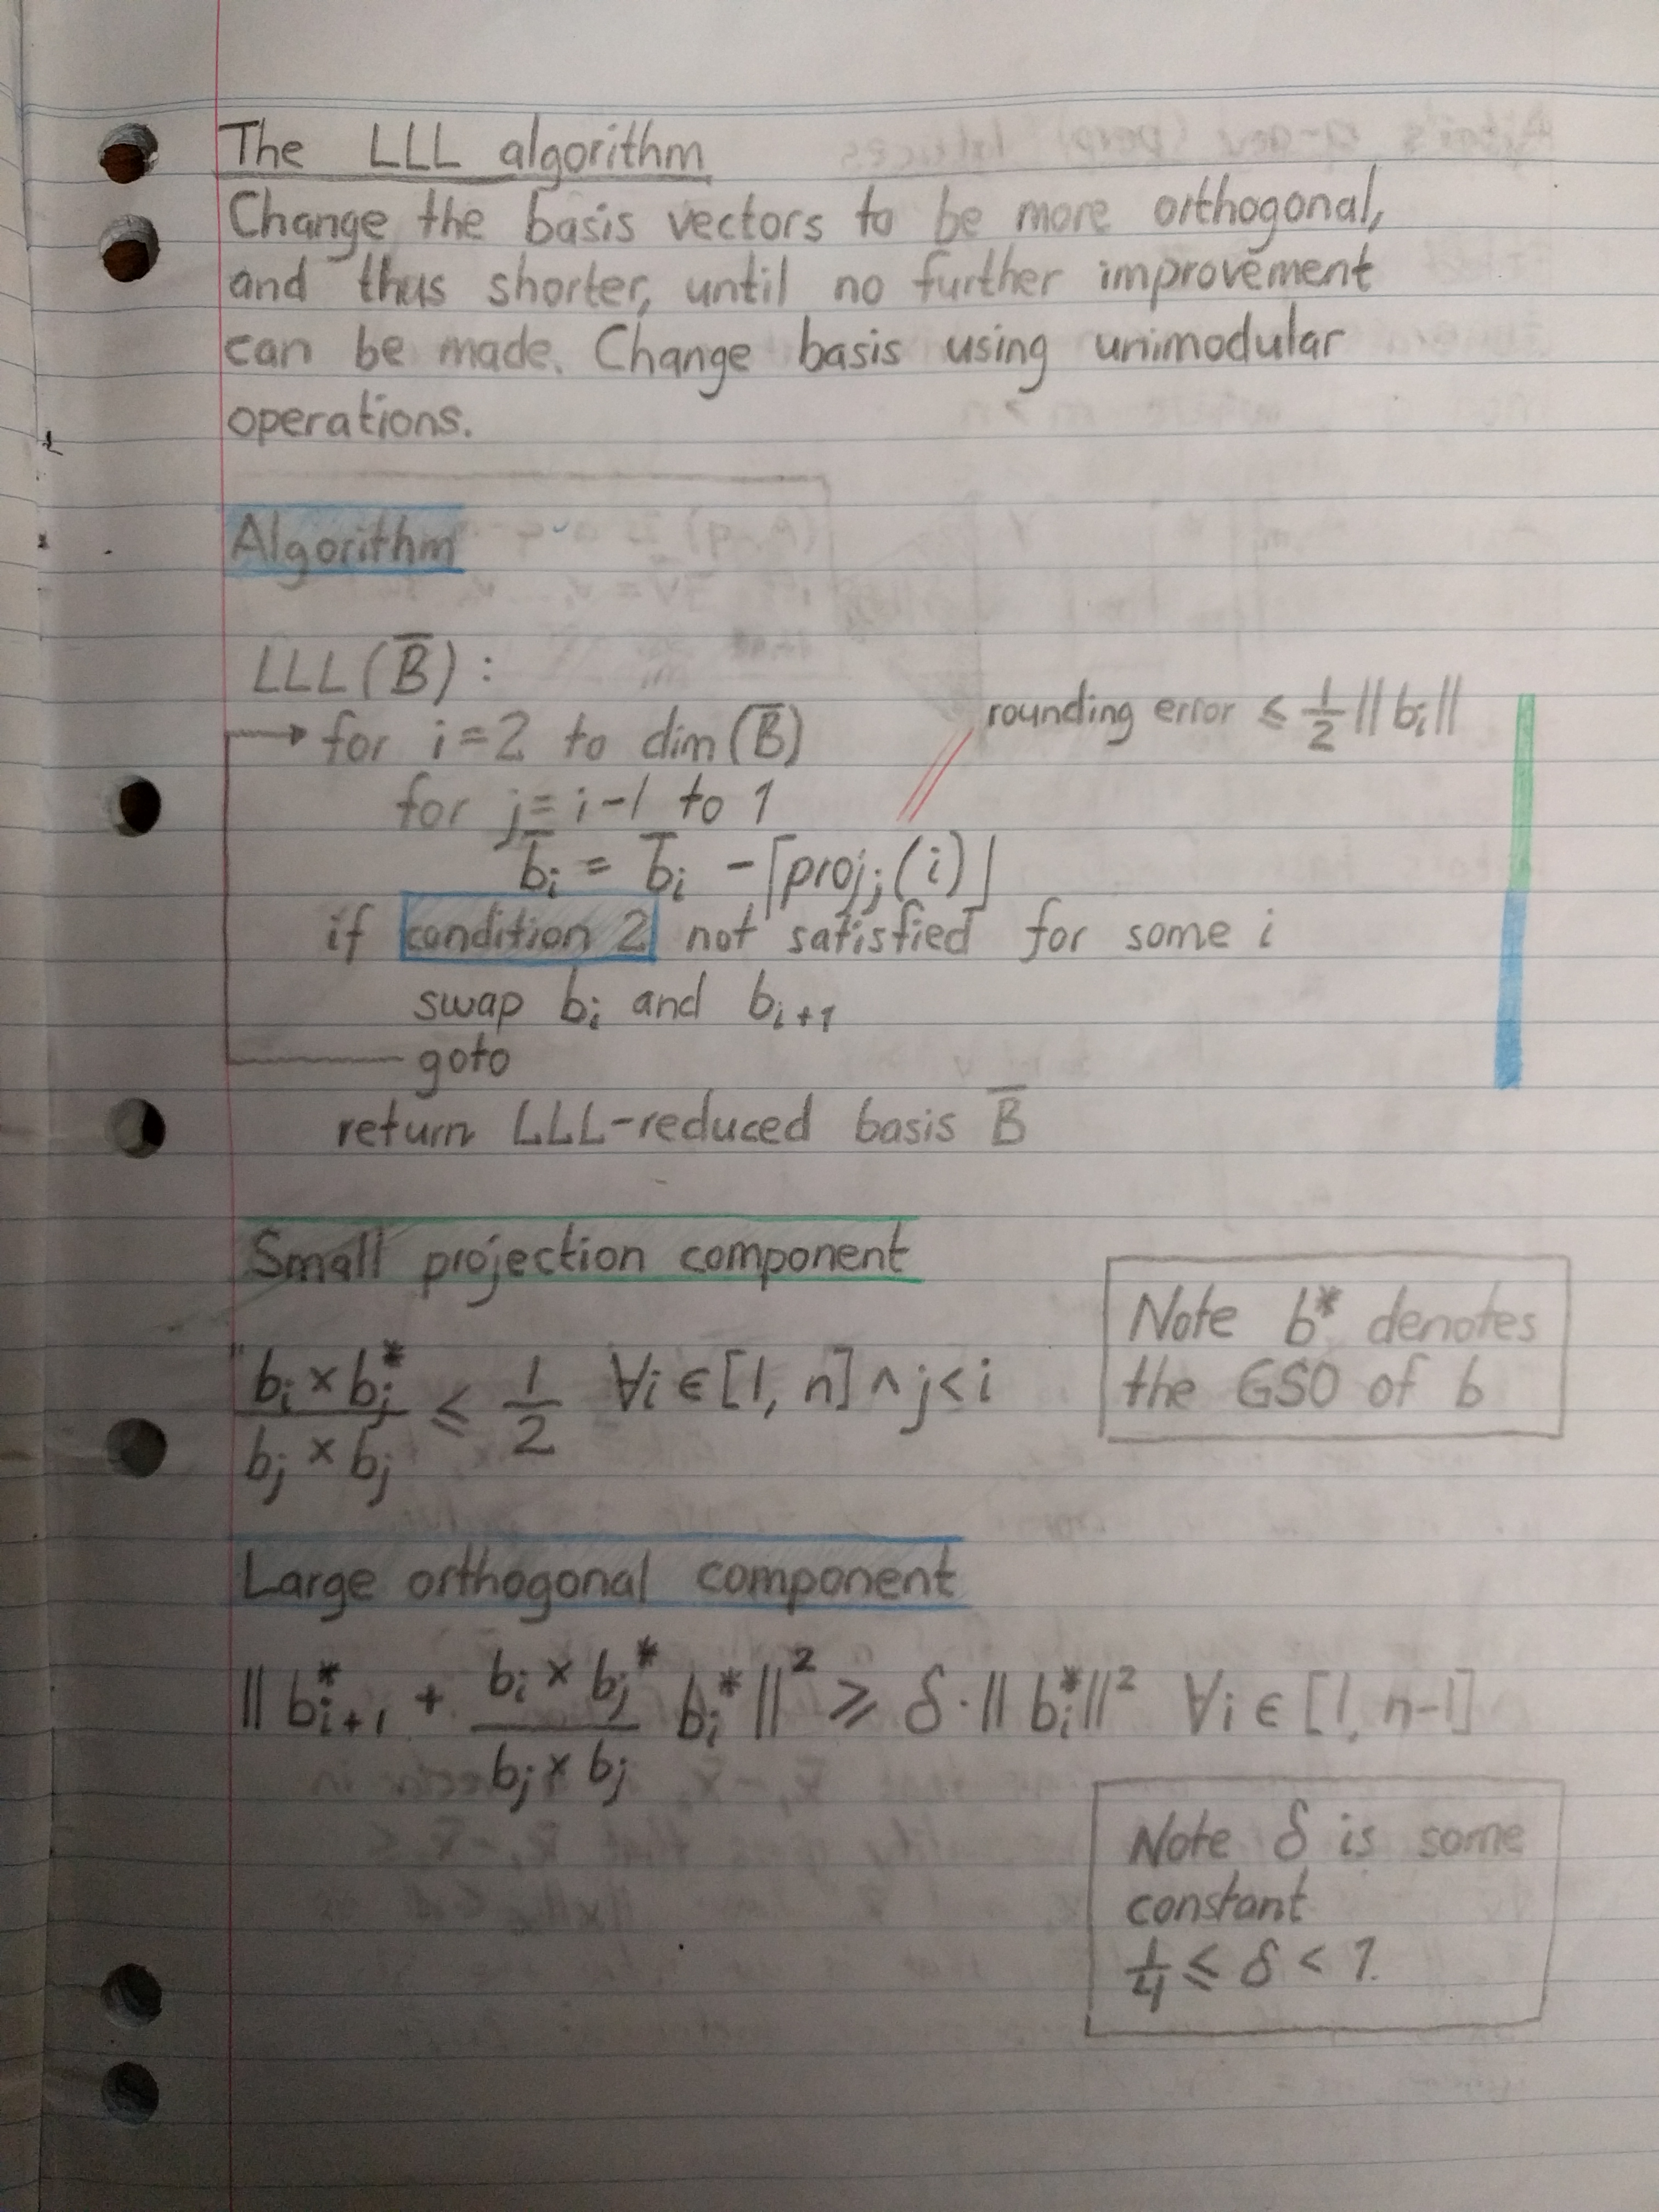 The LLL algorithm
Change the basis vectors to be more orthogonal,
and thus shorter, until no further improvement
can be made. Change basis using unimodular
operations.
Algorithm
LLL(B̅):
for i=2 to dim(B̅)
rounding error ≤ 1/2 ||bᵢ||
for j=i-1 to 1
b̅ᵢ = b̅ᵢ - ⌈projⱼ(i)⌋
if condition 2 not satisfied for some i
swap bᵢ and bᵢ₊₁
goto
return LLL-reduced basis B̅
Small projection component
(bᵢ × bⱼ*)/(bⱼ × bⱼ) ≤ 1/2 ∀i ∈ [1, n] ∧ j<i
Note b* denotes
the GSO of b
Large orthogonal component
||b*ᵢ₊₁ + (bᵢ × bⱼ*)/(bⱼ × bⱼ) bᵢ*||² ≥ δ·||bᵢ*||² ∀i ∈ [1, n-1]
Note δ is some
constant
1/4 ≤ δ < 1.